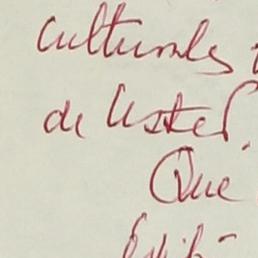 culturales
de Usted.
Que